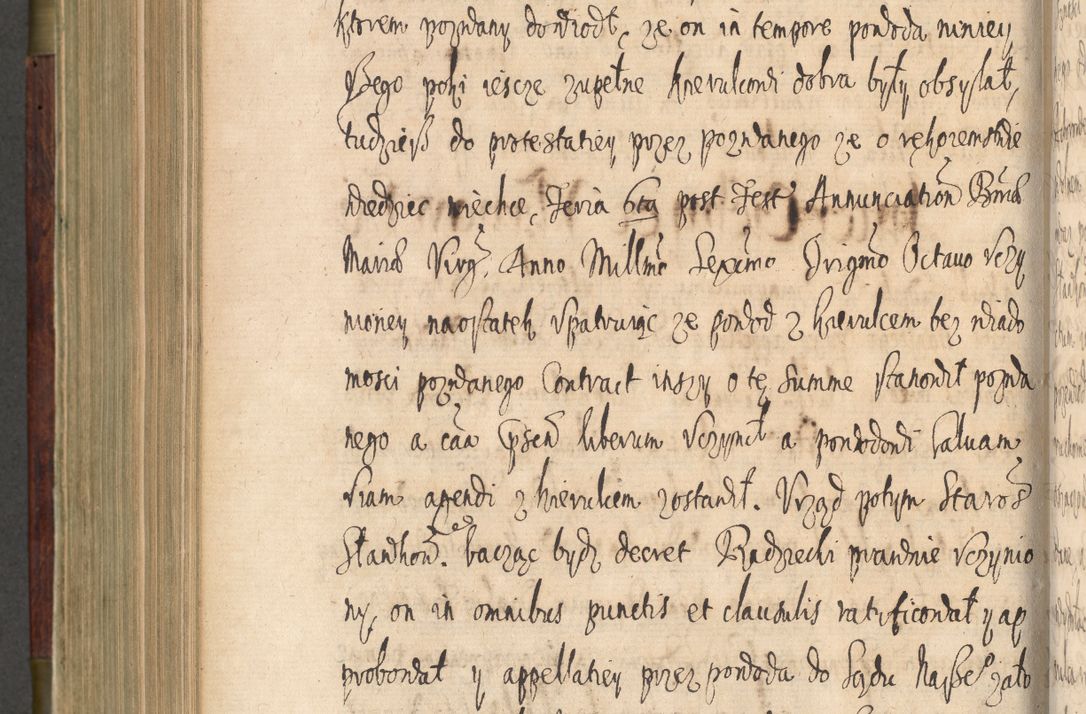 ktorem pozwany dowiodł, ze on in tempore powoda niniey
szego poki iescze zupełne Kierulcowi dobra były obsyłał,
tudziesz do protestatiey przez pozwanego ze o rękoremstwie
wiedziec niechce, Feria 6ta post Fest Annunciation Btmæ
Mariæ Virg. Anno Millmo Sexcmo Trigmo Octavo vczy
nioney naostatek vpatruiąc ze powod z kierulcem bez wiado
mosci pozwanego Contract inszy o tę Summe stanowił pozwa
nego a caa Gpsen liberum vczynił a powodowi Saluam
viam agendi z kierulcem zostawił. Vrząd potym Staros
Stawkow. bacząc bydz decret Radziecki prawnie vczynio
ny, on in omnibus punctis et clausulis ratyficował y ap
probował y appellatiey przez powoda do Sądu Naszeo zało